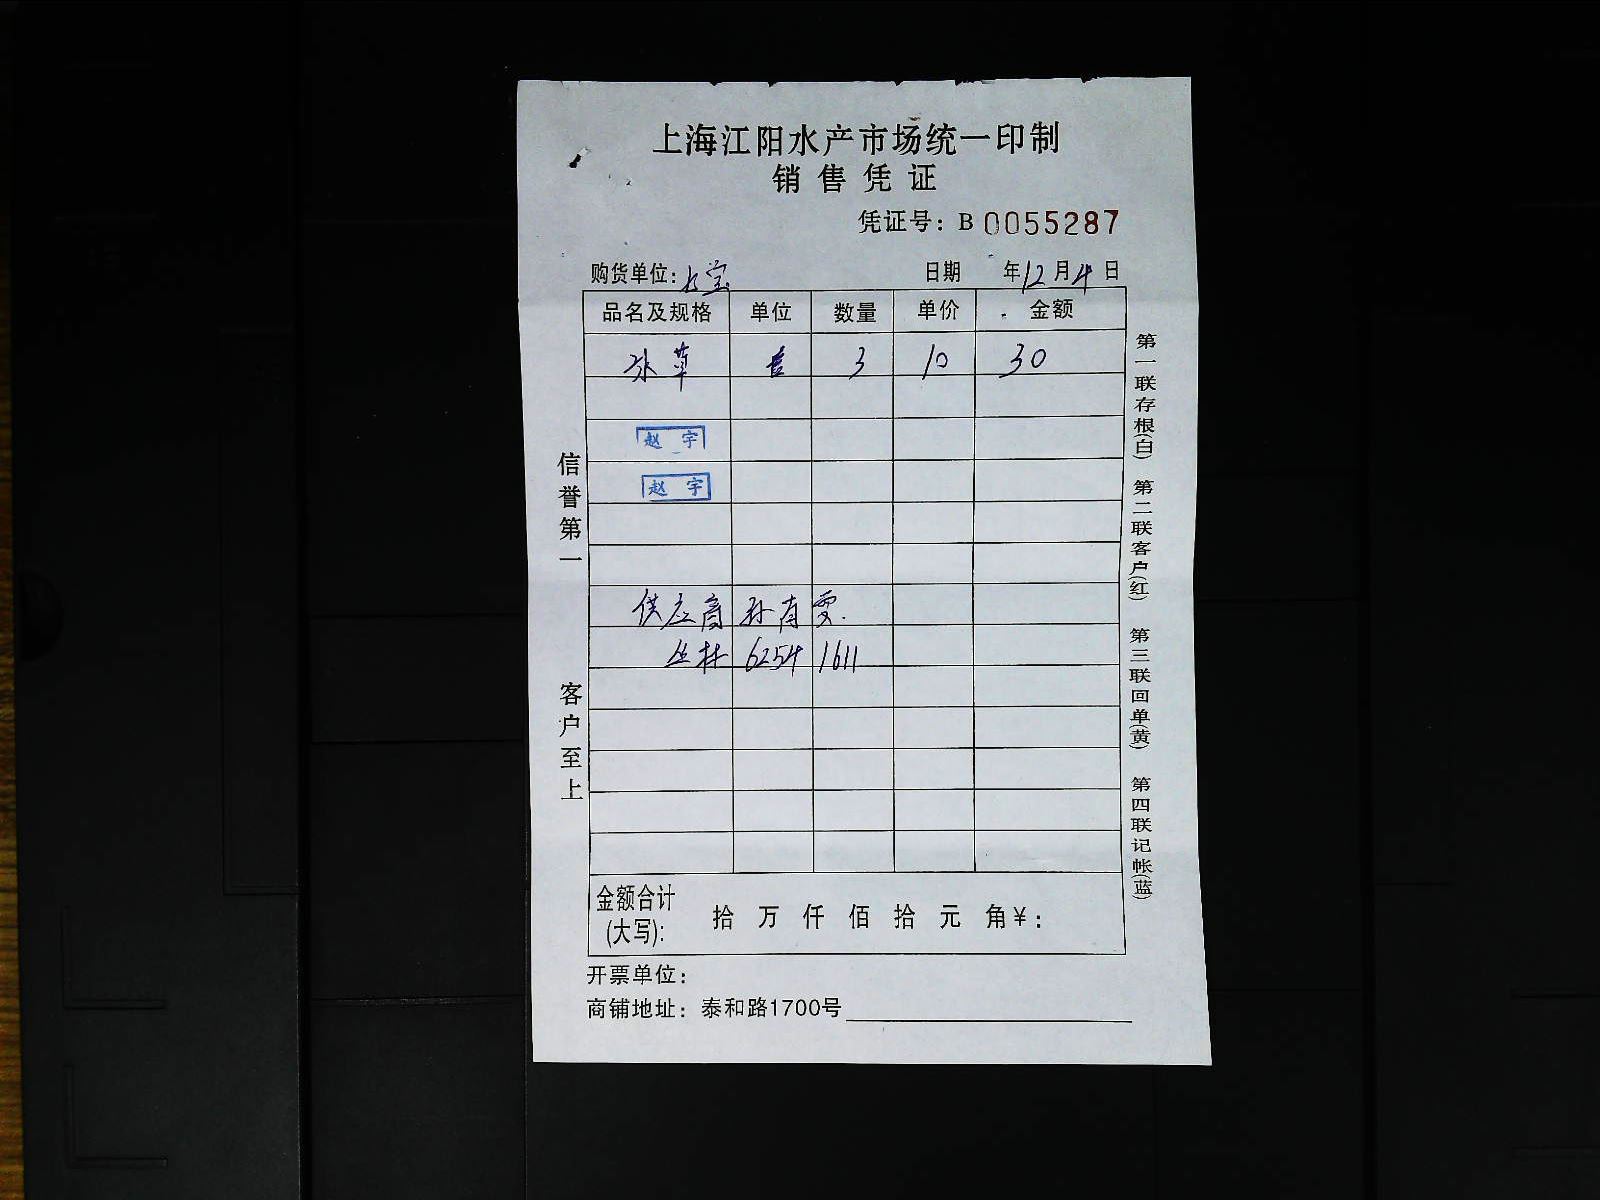 上海江阳水产市场统一印制
销售凭证
凭证号：B 0055287
购货单位： 日期 年12月4日
品名及规格 单位 数量 单价 金额
水草 3 10 30
赵宇
赵宇
供应商 孙有雯.
丛林 6254 1611
金额合计(大写): 拾 万 仟 佰 拾 元 角¥：
开票单位：
商铺地址：泰和路1700号
信誉第一 客户至上
第一联存根(白) 第二联客户(红) 第三联回单(黄) 第四联记帐(蓝)